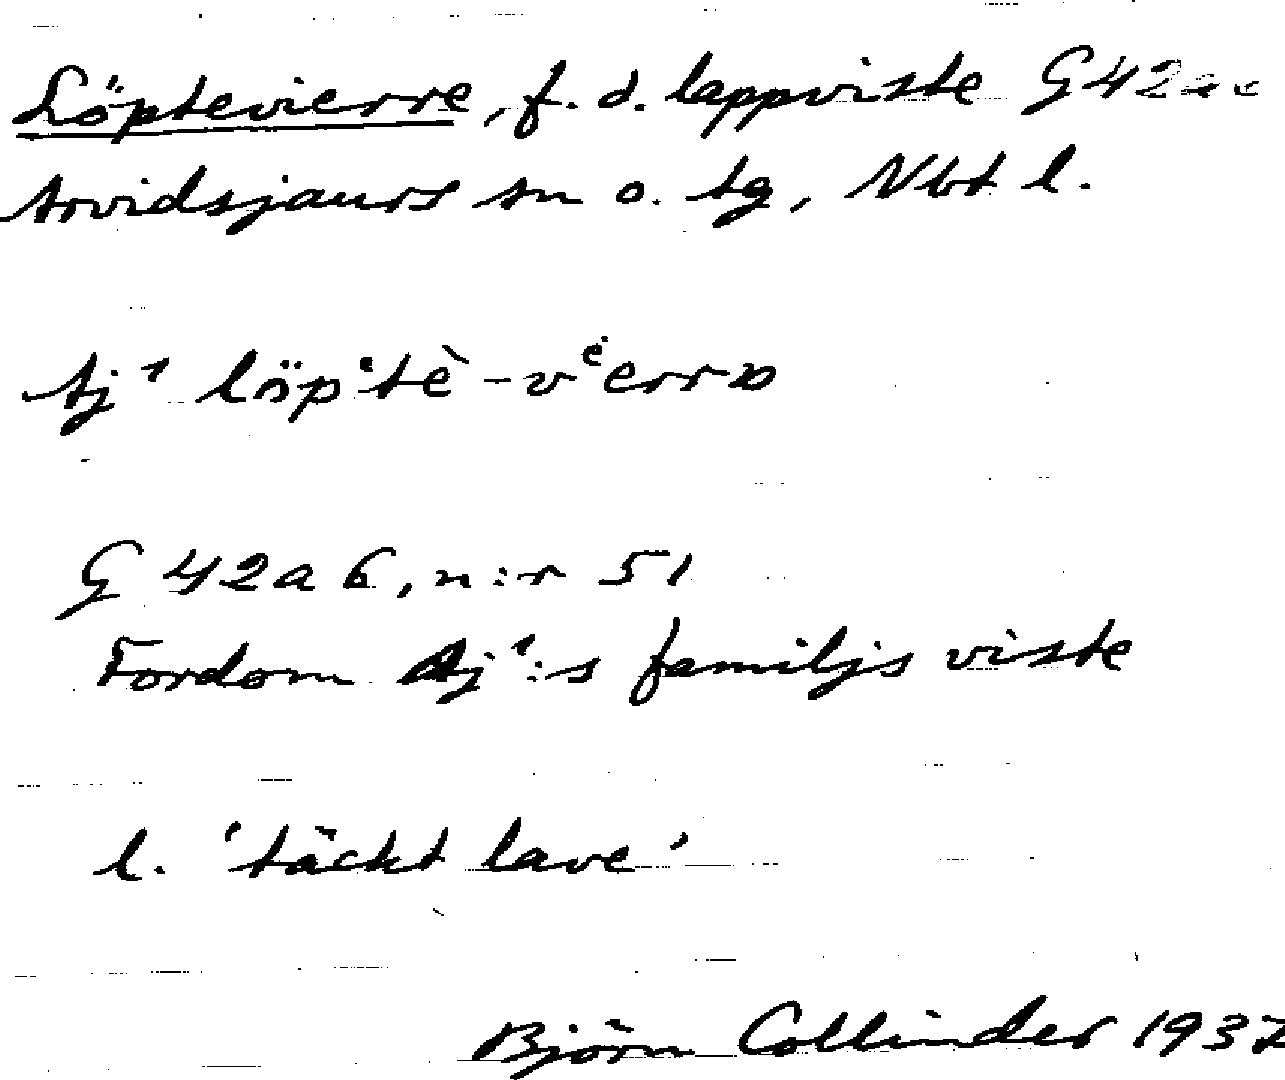 Löptevierre, f. d. lappviste G42a
Arvidsjaurs sn o. tg, Nbt l.
Aj¹ löp'tè-vėerrə
G 42 a 6, n:r 51
Fordom Aj¹:s familjs viste
l. 'täckt lave'
Björn Collinder 1937